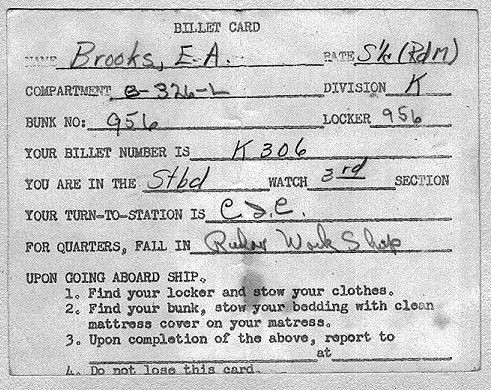 BILLET CARD
NAME Brooks, E.A. RATE S1/c (Rdm)
COMPARTMENT B-326-L DIVISION K
BUNK NO: 956 LOCKER 956
YOUR BILLET NUMBER IS K 306
YOU ARE IN THE Stbd WATCH 3rd SECTION
YOUR TURN-TO-STATION IS C.I.C.
FOR QUARTERS, FALL IN Radar Work Shop
UPON GOING ABOARD SHIP.
1. Find your locker and stow your clothes.
2. Find your bunk, stow your bedding with clean
mattress cover on your matress.
3. Upon completion of the above, report to
at
4. Do not lose this card.